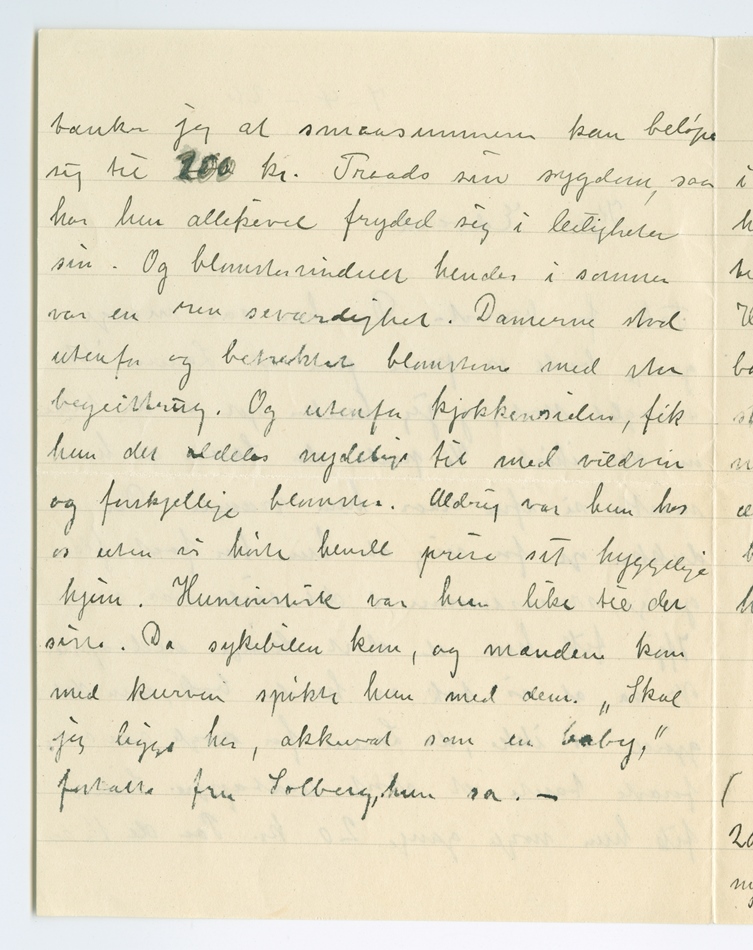 tænker jeg at smaasummerne kan beløpe
sig til 200 kr. Traads sin sygdom, saa i
har hun allikevel frydet sig i leiligheten
sin. Og blomstervinduet hendes i sommer
var en ren seværdighet. Damerne stod
utenfor og betraktet blomsterne med stor
begeistring. Og utenfor kjøkkensiden, fik
hun det aldeles nydelige til med vildvin
og forskjellige blomster. Aldrig var hun hos
os uten vi hørte hende prise sit hyggelige
hjem. Humoristisk var hun like til det
siste. Da sykebilen kom, og mændene kom
med kurven spøkte hun med dem. „Skal
jeg ligge her, akkurat som en baby,"
fortalte fru Solberg, hun sa. —